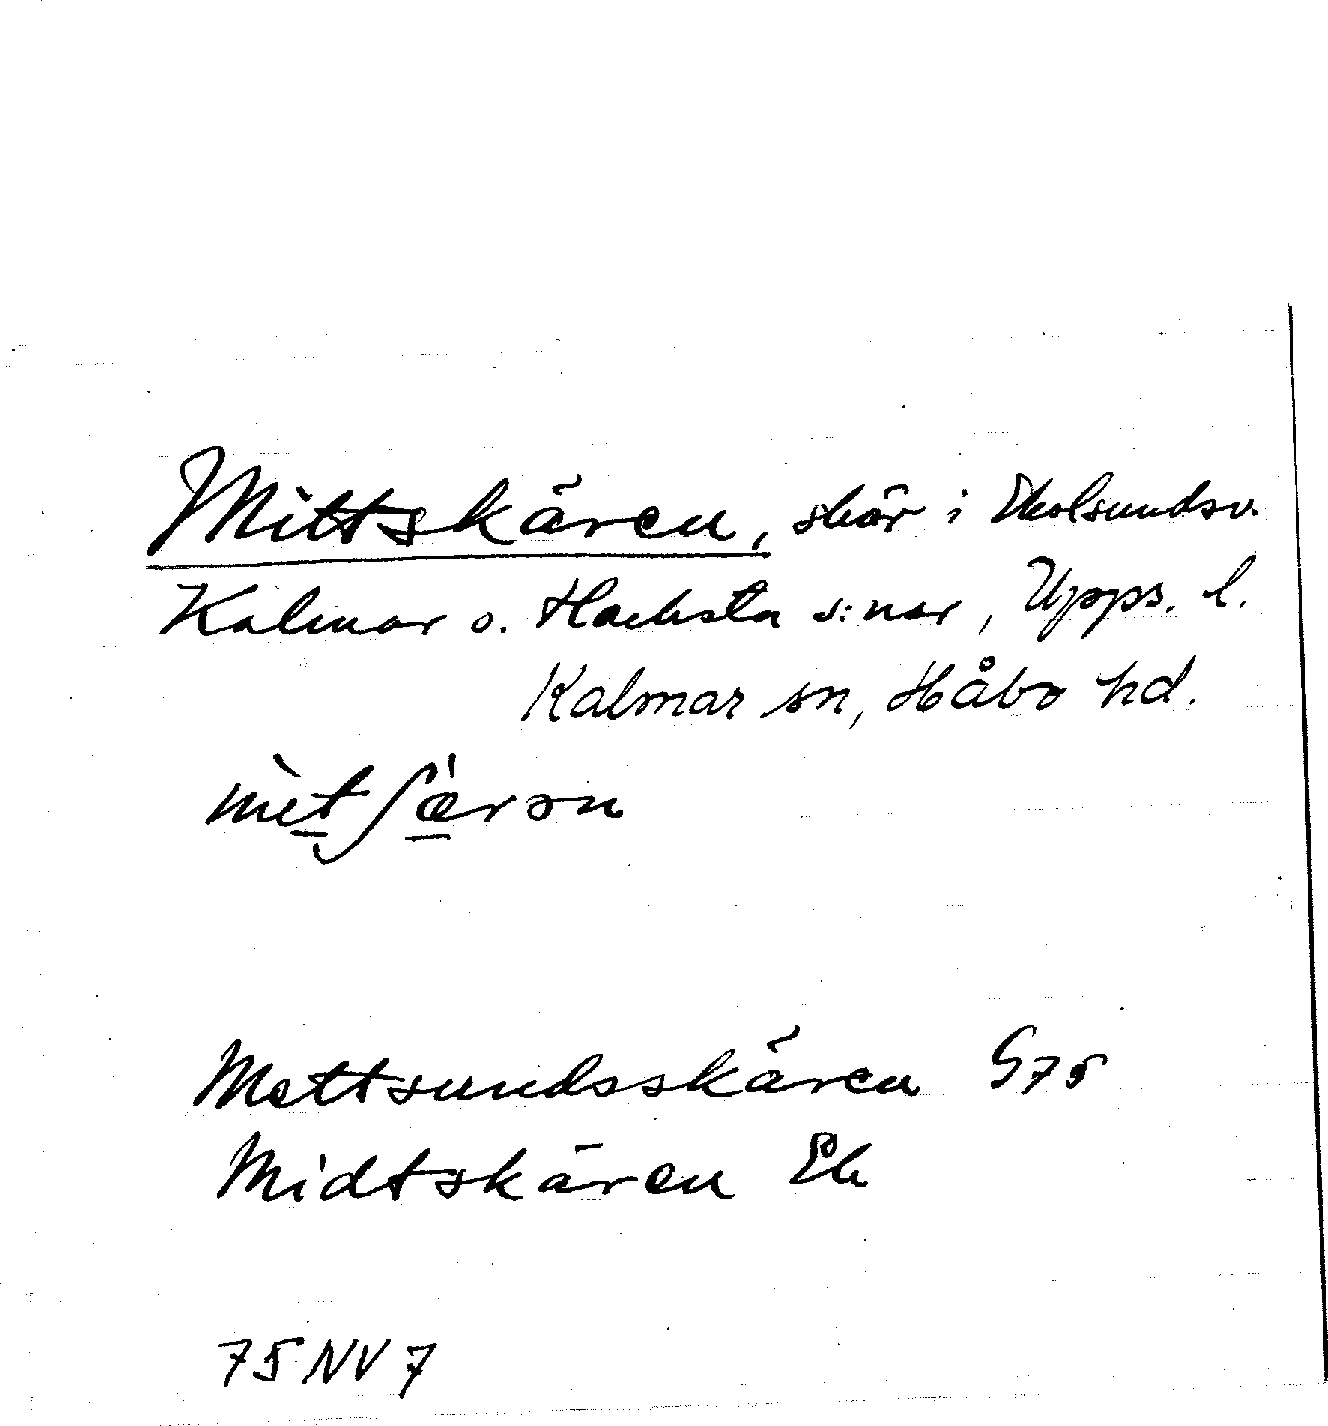 Mittskären, skär i Ekolsundsv.
Kalmar o. Hacksta s:nar, Upps. l.
Kalmar sn, Håbo hd.
mètʃæ̀rən
Mettsundsskären G75
Midtskären Ek
75NV7